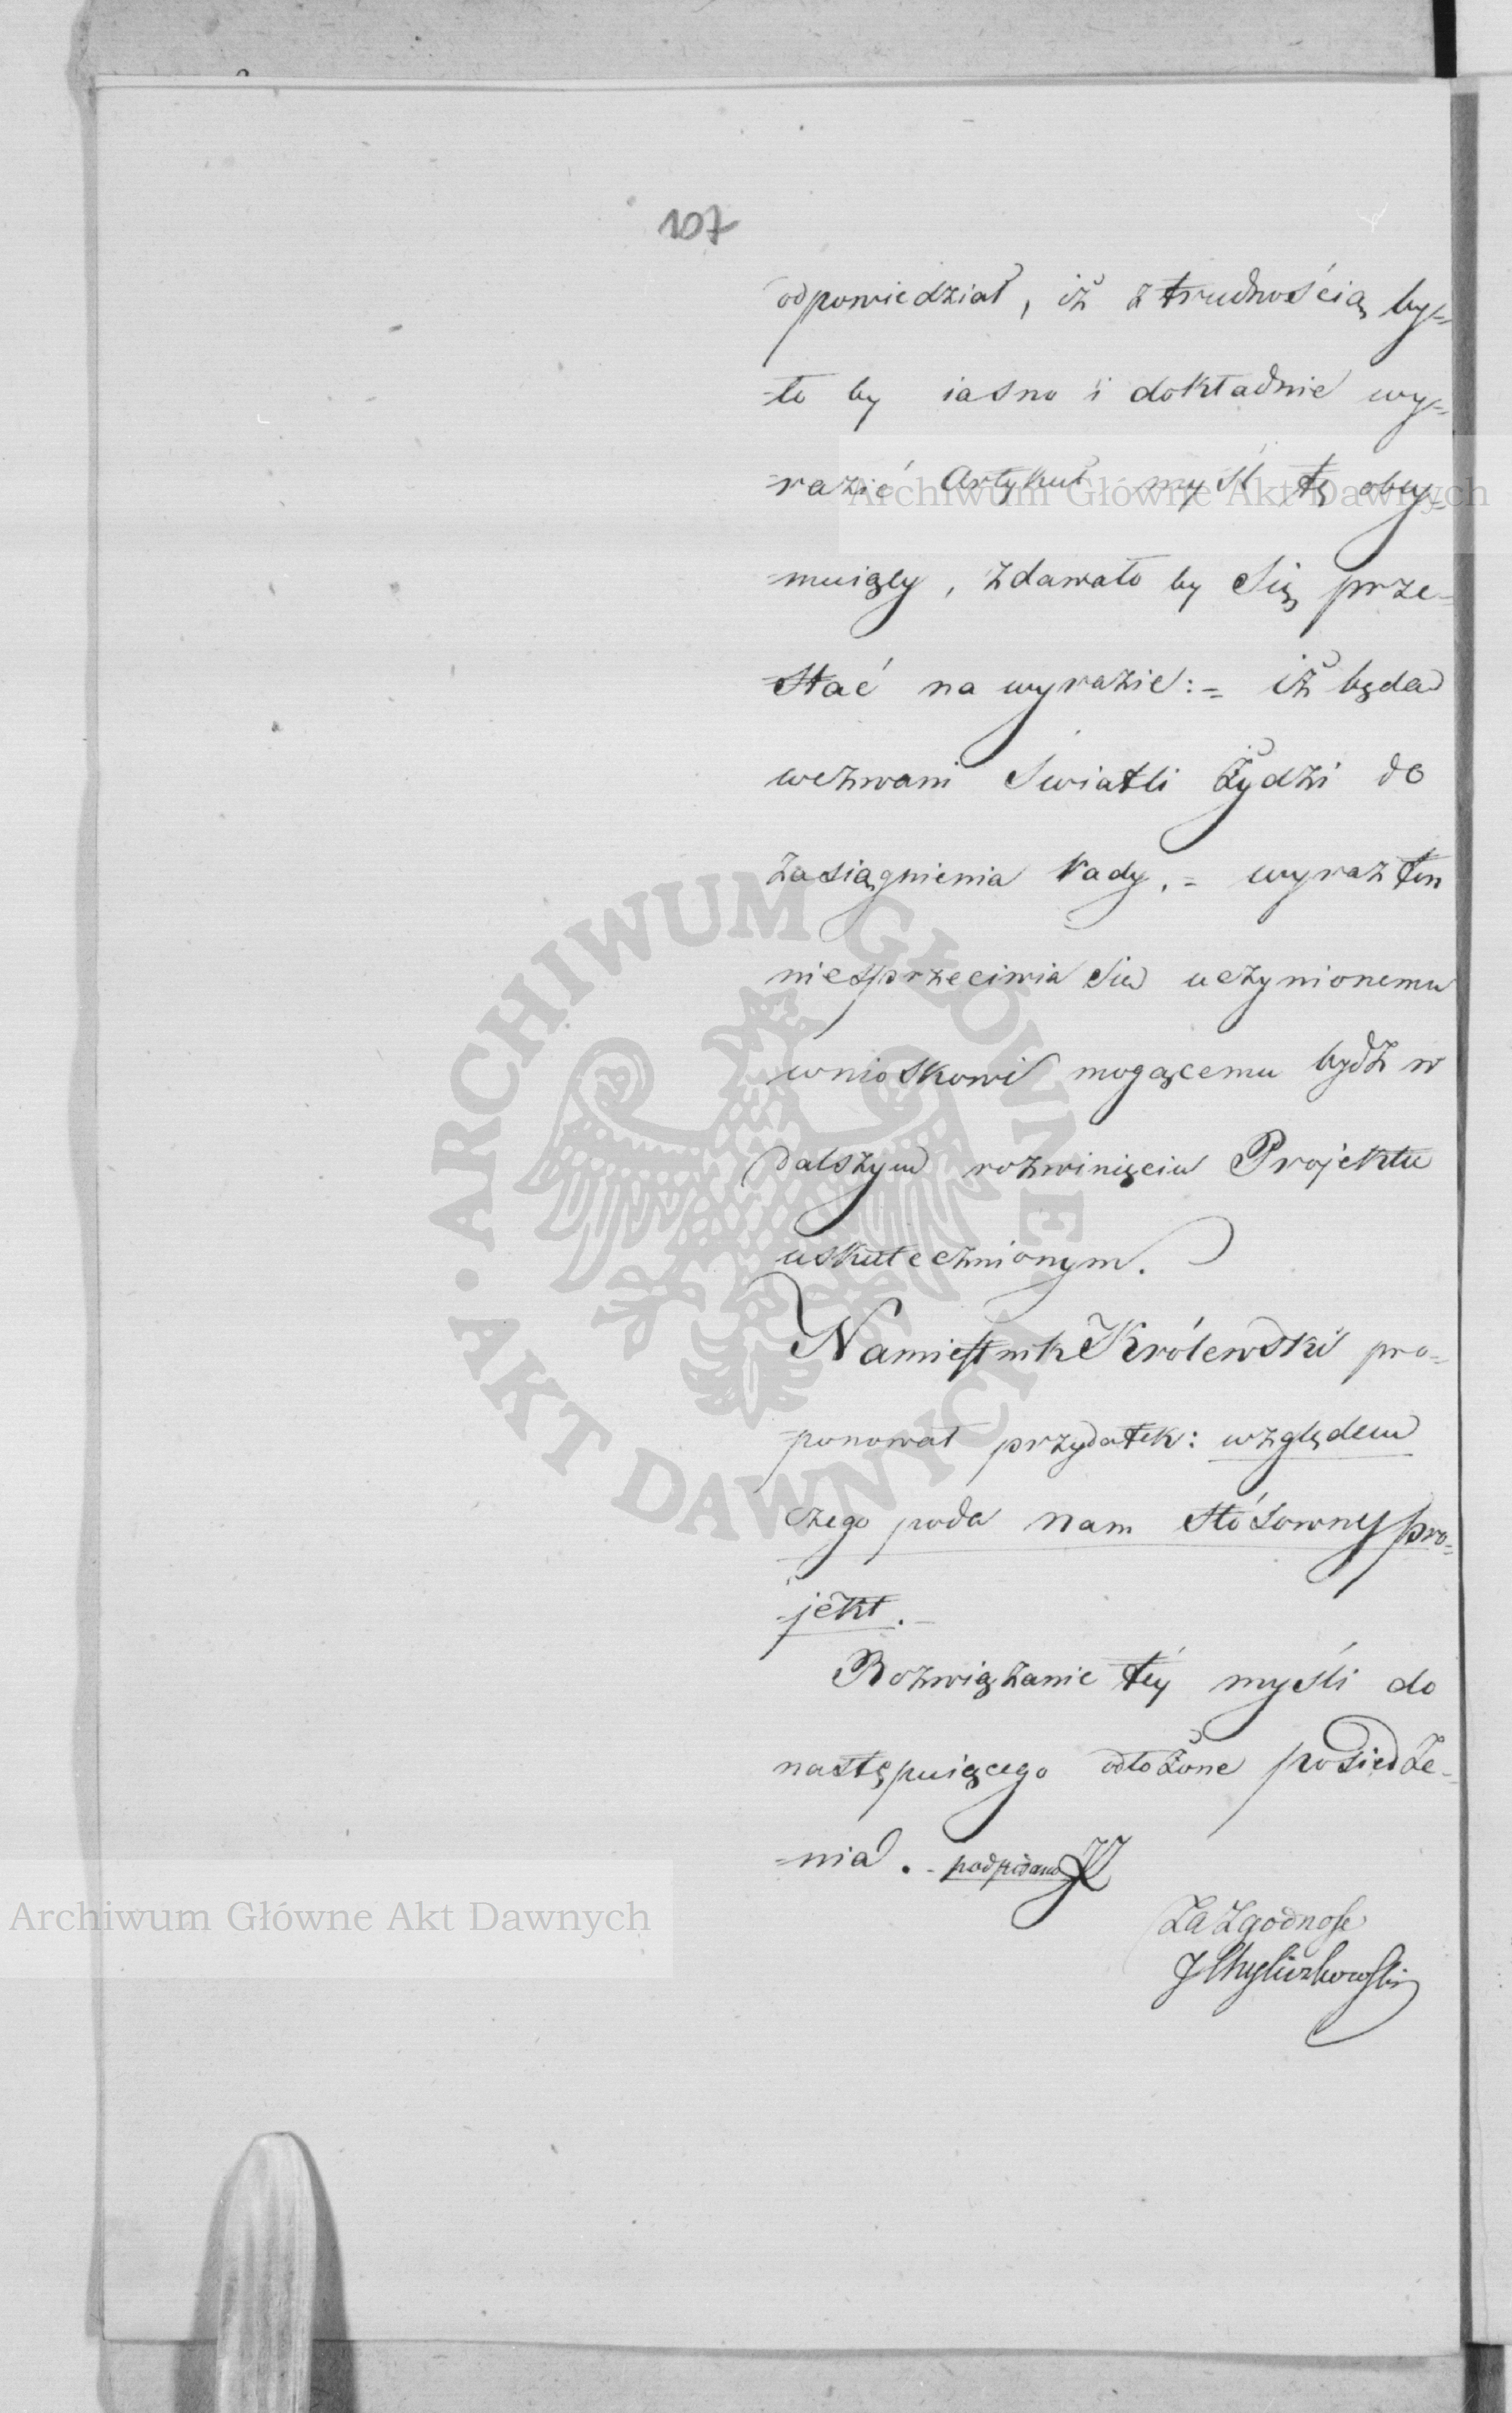 107
odpowiedział, iż z trudnością by=
=ło by iasno i dokładnie wy=
=razić Artykuł myśl tę obey=
=muiący, zdawało by się prze=
=stać na wyrazie: = iż będą
wezwani Światli Żydzi do
zasiągnienia rady. = wyraz ten
niesprzeciwia się uczynionemu
wnioskowi mogącemu bydź w
dalszym rozwinięciu Projektu
uskutecznionym.
Namiestnik Królewski pro=
=ponował przydatek: względem
czego poda nam stósowny pro=
=jekt. -
Rozwiązanie téy myśli do
następuiącego odłożone posiedze=
=nia. - podpisano
Za Zgodnosc
Archiwum Główne Akt Dawnych
ARCHIWUM GŁÓWNE AKT DAWNYCH
Archiwum Główne Akt Dawnych